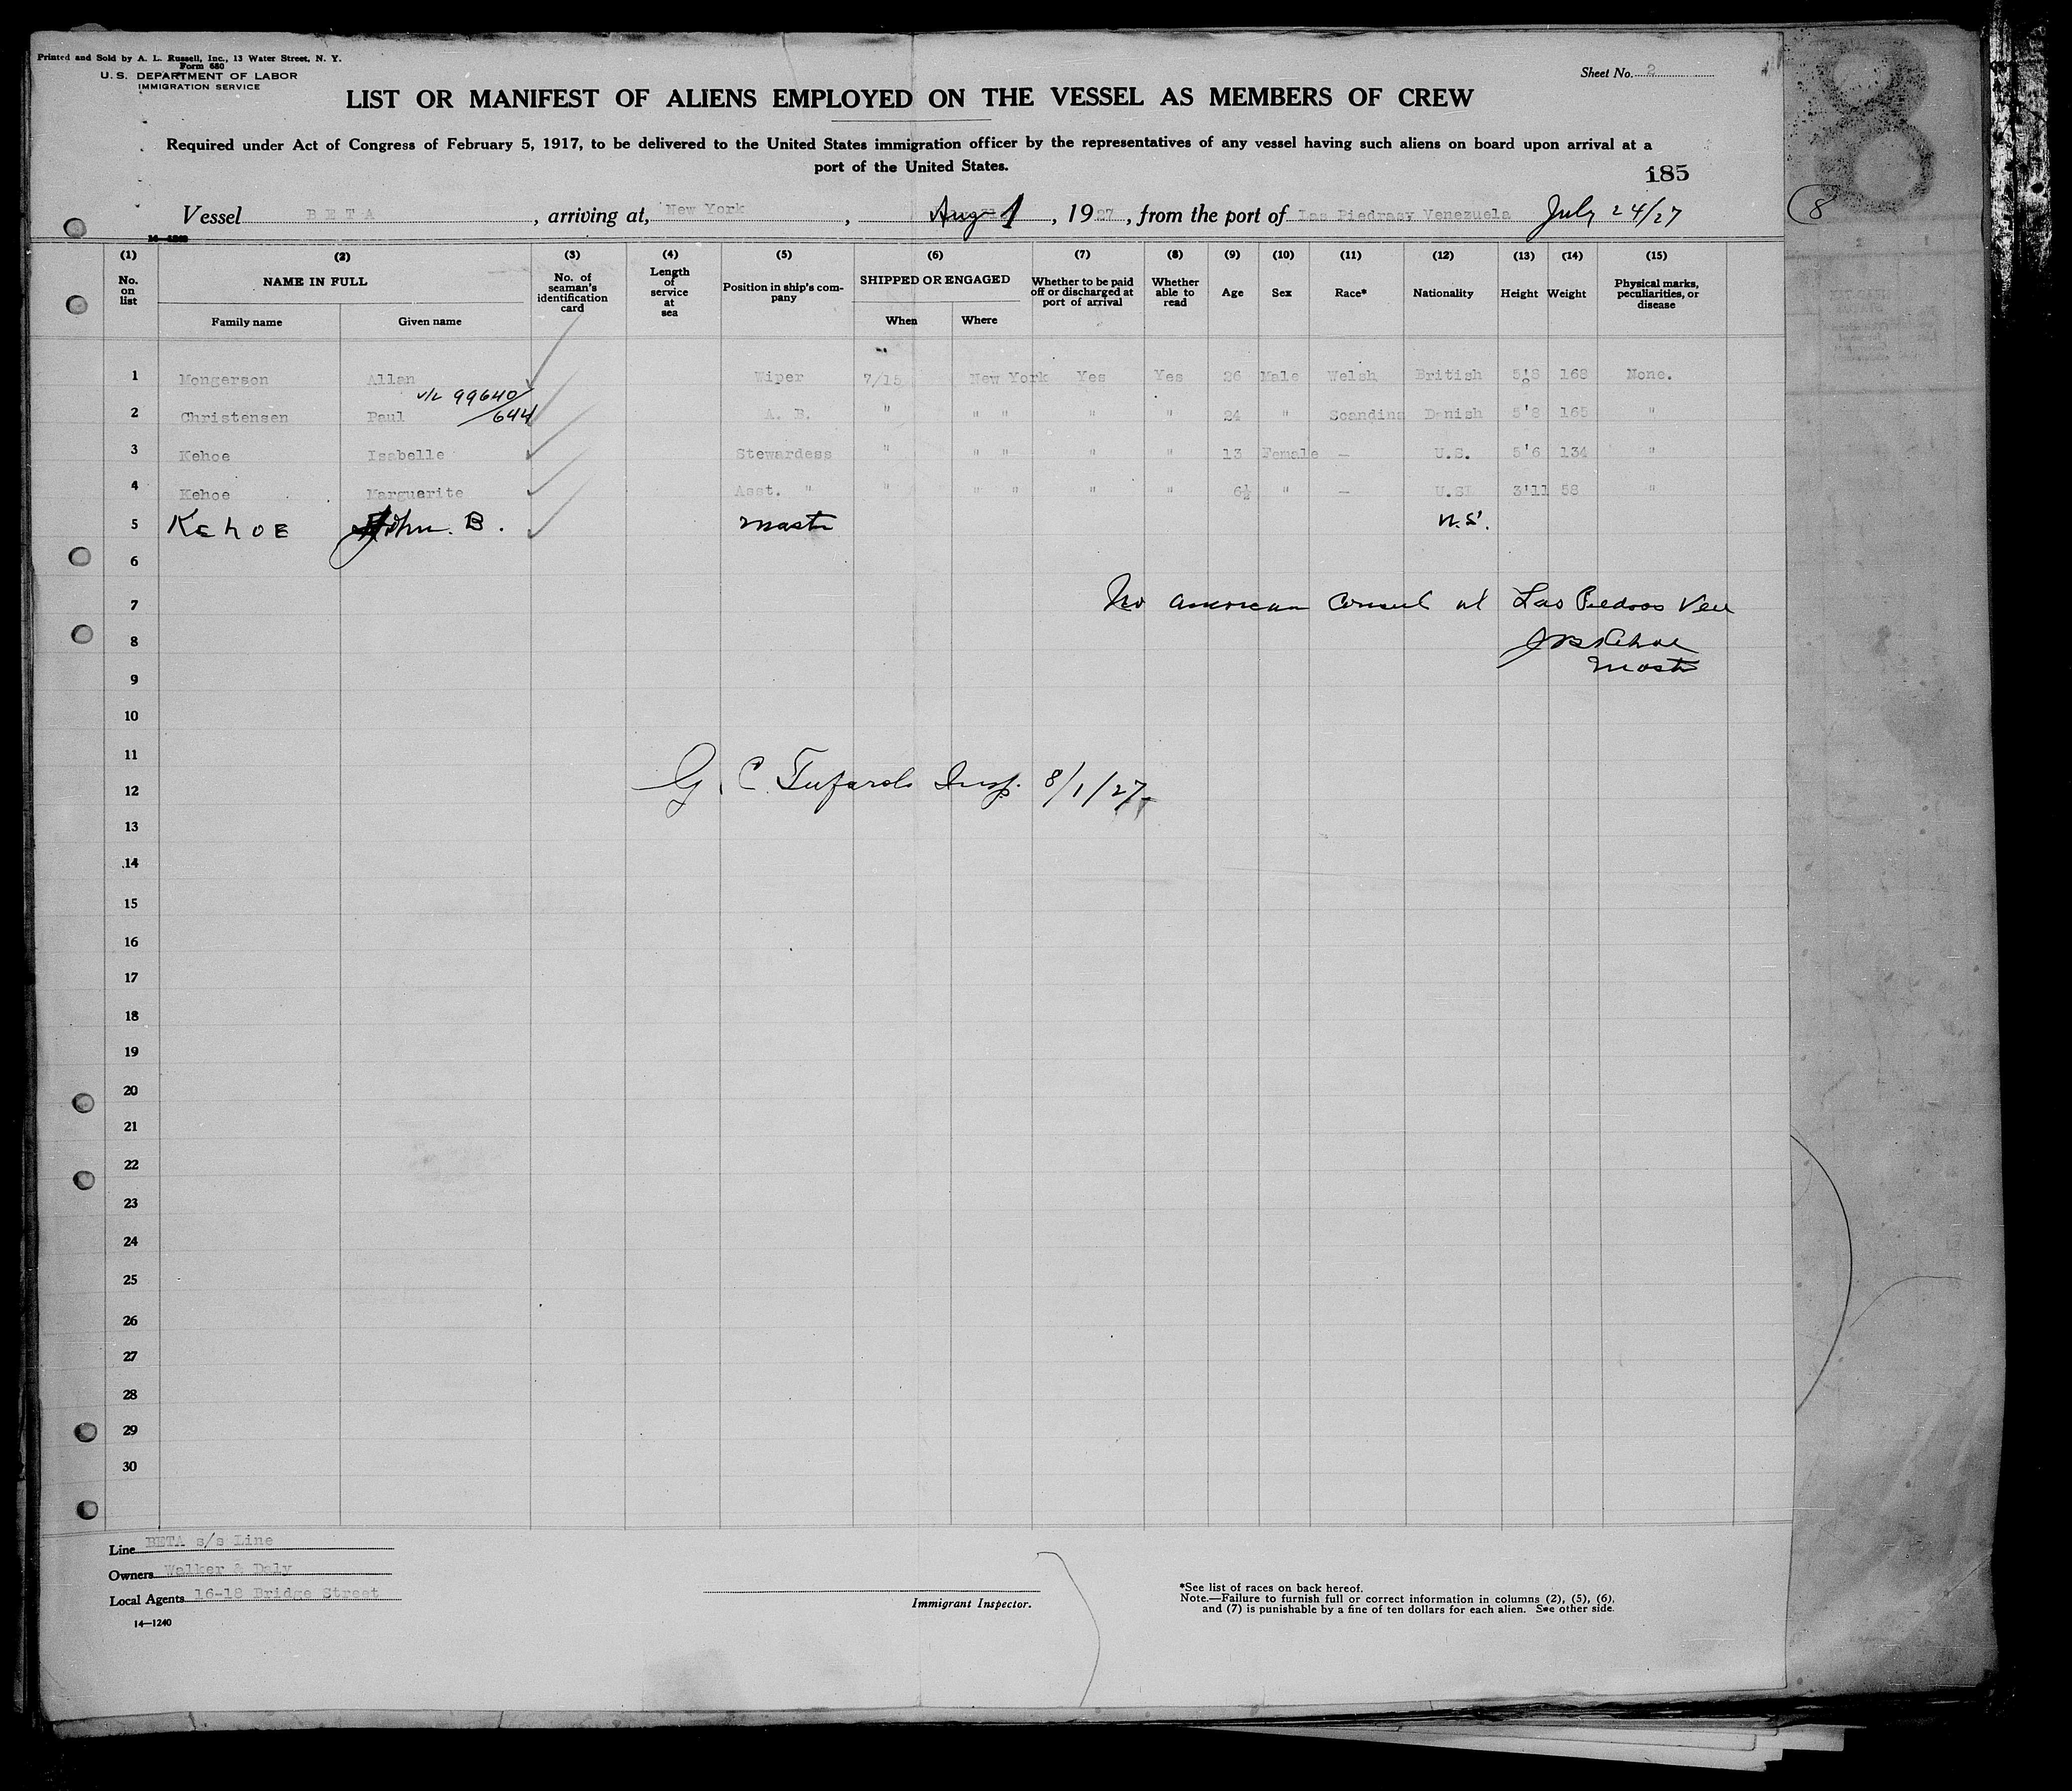 Printed and Sold by A. L. Russell, Inc., 13 Water Street, N. Y.
Form 680
U. S. DEPARTMENT OF LABOR
IMMIGRATION SERVICE
Sheet No. 2
LIST OR MANIFEST OF ALIENS EMPLOYED ON THE VESSEL AS MEMBERS OF CREW
Required under Act of Congress of February 5, 1917, to be delivered to the United States immigration officer by the representatives of any vessel having such aliens on board upon arrival at a
port of the United States.
185
Vessel BETA, arriving at, New York, Aug 1, 1927, from the port of Las Piedras, Venezuela July 24/27
8
(1) (2) (3) (4) (5) (6) (7) (8) (9) (10) (11) (12) (13) (14) (15)
No. on list NAME IN FULL Family name Given name No. of seaman's identification card Length of service at sea Position in ship's company SHIPPED OR ENGAGED When Where Whether to be paid off or discharged at port of arrival Whether able to read Age Sex Race* Nationality Height Weight Physical marks, peculiarities, or disease
1 Mongerson Allan Wiper 7/15 New York Yes Yes 26 Male Welsh British 5'8 168 None.
99640/644
2 Christensen Paul A. B. " " " " " 24 " Scandina Danish 5'8 165 "
3 Kehoe Isabelle Stewardess " " " " " 13 Female — U.S. 5'6 134 "
4 Kehoe Marguerite Asst. " " " " " " 6½ " — U.S. 3'11 58 "
5 KEHOE John. B. Master U.S.
6
7 No American Consul at Las Piedras Ven
8 J B Kehoe
9 Master
10
11
12 G. C. Insp. 8/1/27
13
14
15
16
17
18
19
20
21
22
23
24
25
26
27
28
29
30
Line BETA s/s Line
Owners Walker & Daly
Local Agents 16-18 Bridge Street
14—1240
Immigrant Inspector.
*See list of races on back hereof.
Note.—Failure to furnish full or correct information in columns (2), (5), (6),
and (7) is punishable by a fine of ten dollars for each alien. See other side.